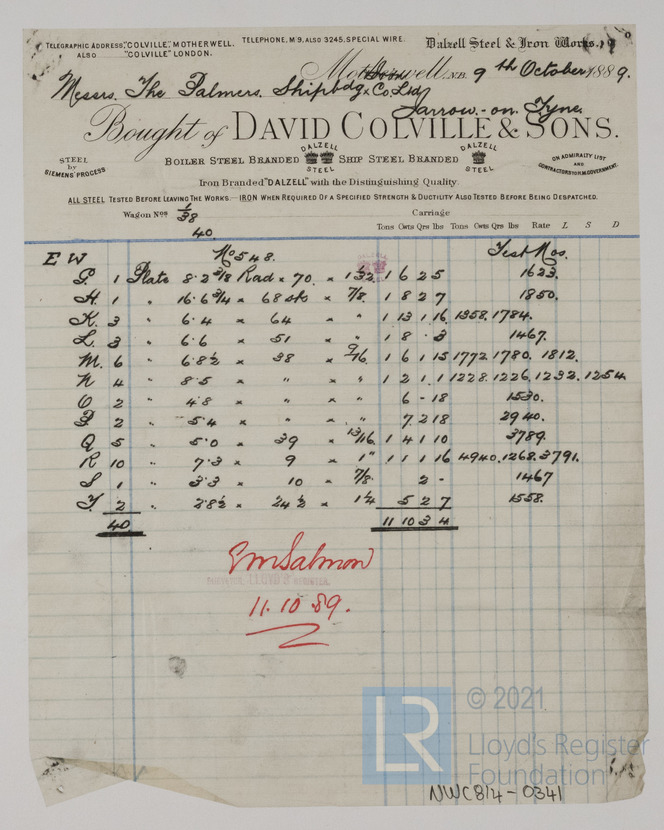 TELEGRAPHIC ADDRESS, "COLVILLE", MOTHERWELL.
ALSO "COLVILLE" LONDON.
TELEPHONE, M 9, ALSO 3245, SPECIAL WIRE.
Dalzell Steel & Iron Works,
Motherwell, N.B. 9th October, 1889.
Messrs. The Palmers. Shipbdg & Co. Ltd
Jarrow-on-Tyne.
Bought of DAVID COLVILLE & SONS.
STEEL by SIEMENS' PROCESS
BOILER STEEL BRANDED DALZELL STEEL SHIP STEEL BRANDED DALZELL STEEL
ON ADMIRALTY LIST AND CONTRACTORS FOR H.M. GOVERNMENT.
Iron Branded "DALZELL" with the Distinguishing Quality.
ALL STEEL TESTED BEFORE LEAVING THE WORKS. — IRON WHEN REQUIRED OF A SPECIFIED STRENGTH & DUCTILITY ALSO TESTED BEFORE BEING DESPATCHED.
Wagon Nos 1/38
40
Carriage
Tons Cwts Qrs lbs Tons Cwts Qrs lbs Rate £ S D
E W No 548. Test Nos.
G. 1 Plate 8.2 3/8 Rad × 70. × 1 1/32 1 6 2 5 1623.
H. 1 " 16.6 3/4 × 68 sks × 7/8 1 8 2 7 1850.
K. 3 " 6.4 × 64 × " 1 13 1 16 1358. 1784.
L. 3 " 6.6 × 51 × " 1 8 . 3 1467.
M. 6 " 6.8 1/2 × 38 × 9/16 1 6 1 15 1772. 1780. 1812.
N 4 " 8.5 × " × " 1 2 1 1 1228. 1226. 1232. 1254.
O 2 " 4.8 × " × " 6 - 18 1530.
P 2 " 5.4 × " × " 7 2 18 2940.
Q 5 " 5.0 × 39 × 13/16 1 4 1 10 3789.
R 10 " 7.3 × 9 × 1" 1 1 1 16 4940. 1268. 3791.
S 1 " 3.3 × 10 × 7/8 2 - 1467
T. 2 " 2.8 1/2 × 24 1/2 × 1 1/4 5 2 7 1558.
40 11 10 3 4
E M Salmon
SURVEYOR, LLOYD'S REGISTER.
11.10.89.
LR
© 2021
Lloyd's Register
Foundation
NWC814-0341